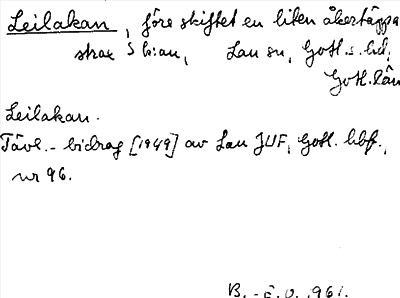 Leilakan, före skiftet en liten åkertäppa
strax S bian, Lau sn, Gotl. s. hd,
Gotl. län
Leilakan.
Tävl.-bidrag [1949] av Lau JUF, Gotl. hbf.,
nr 96.
B. 1961.